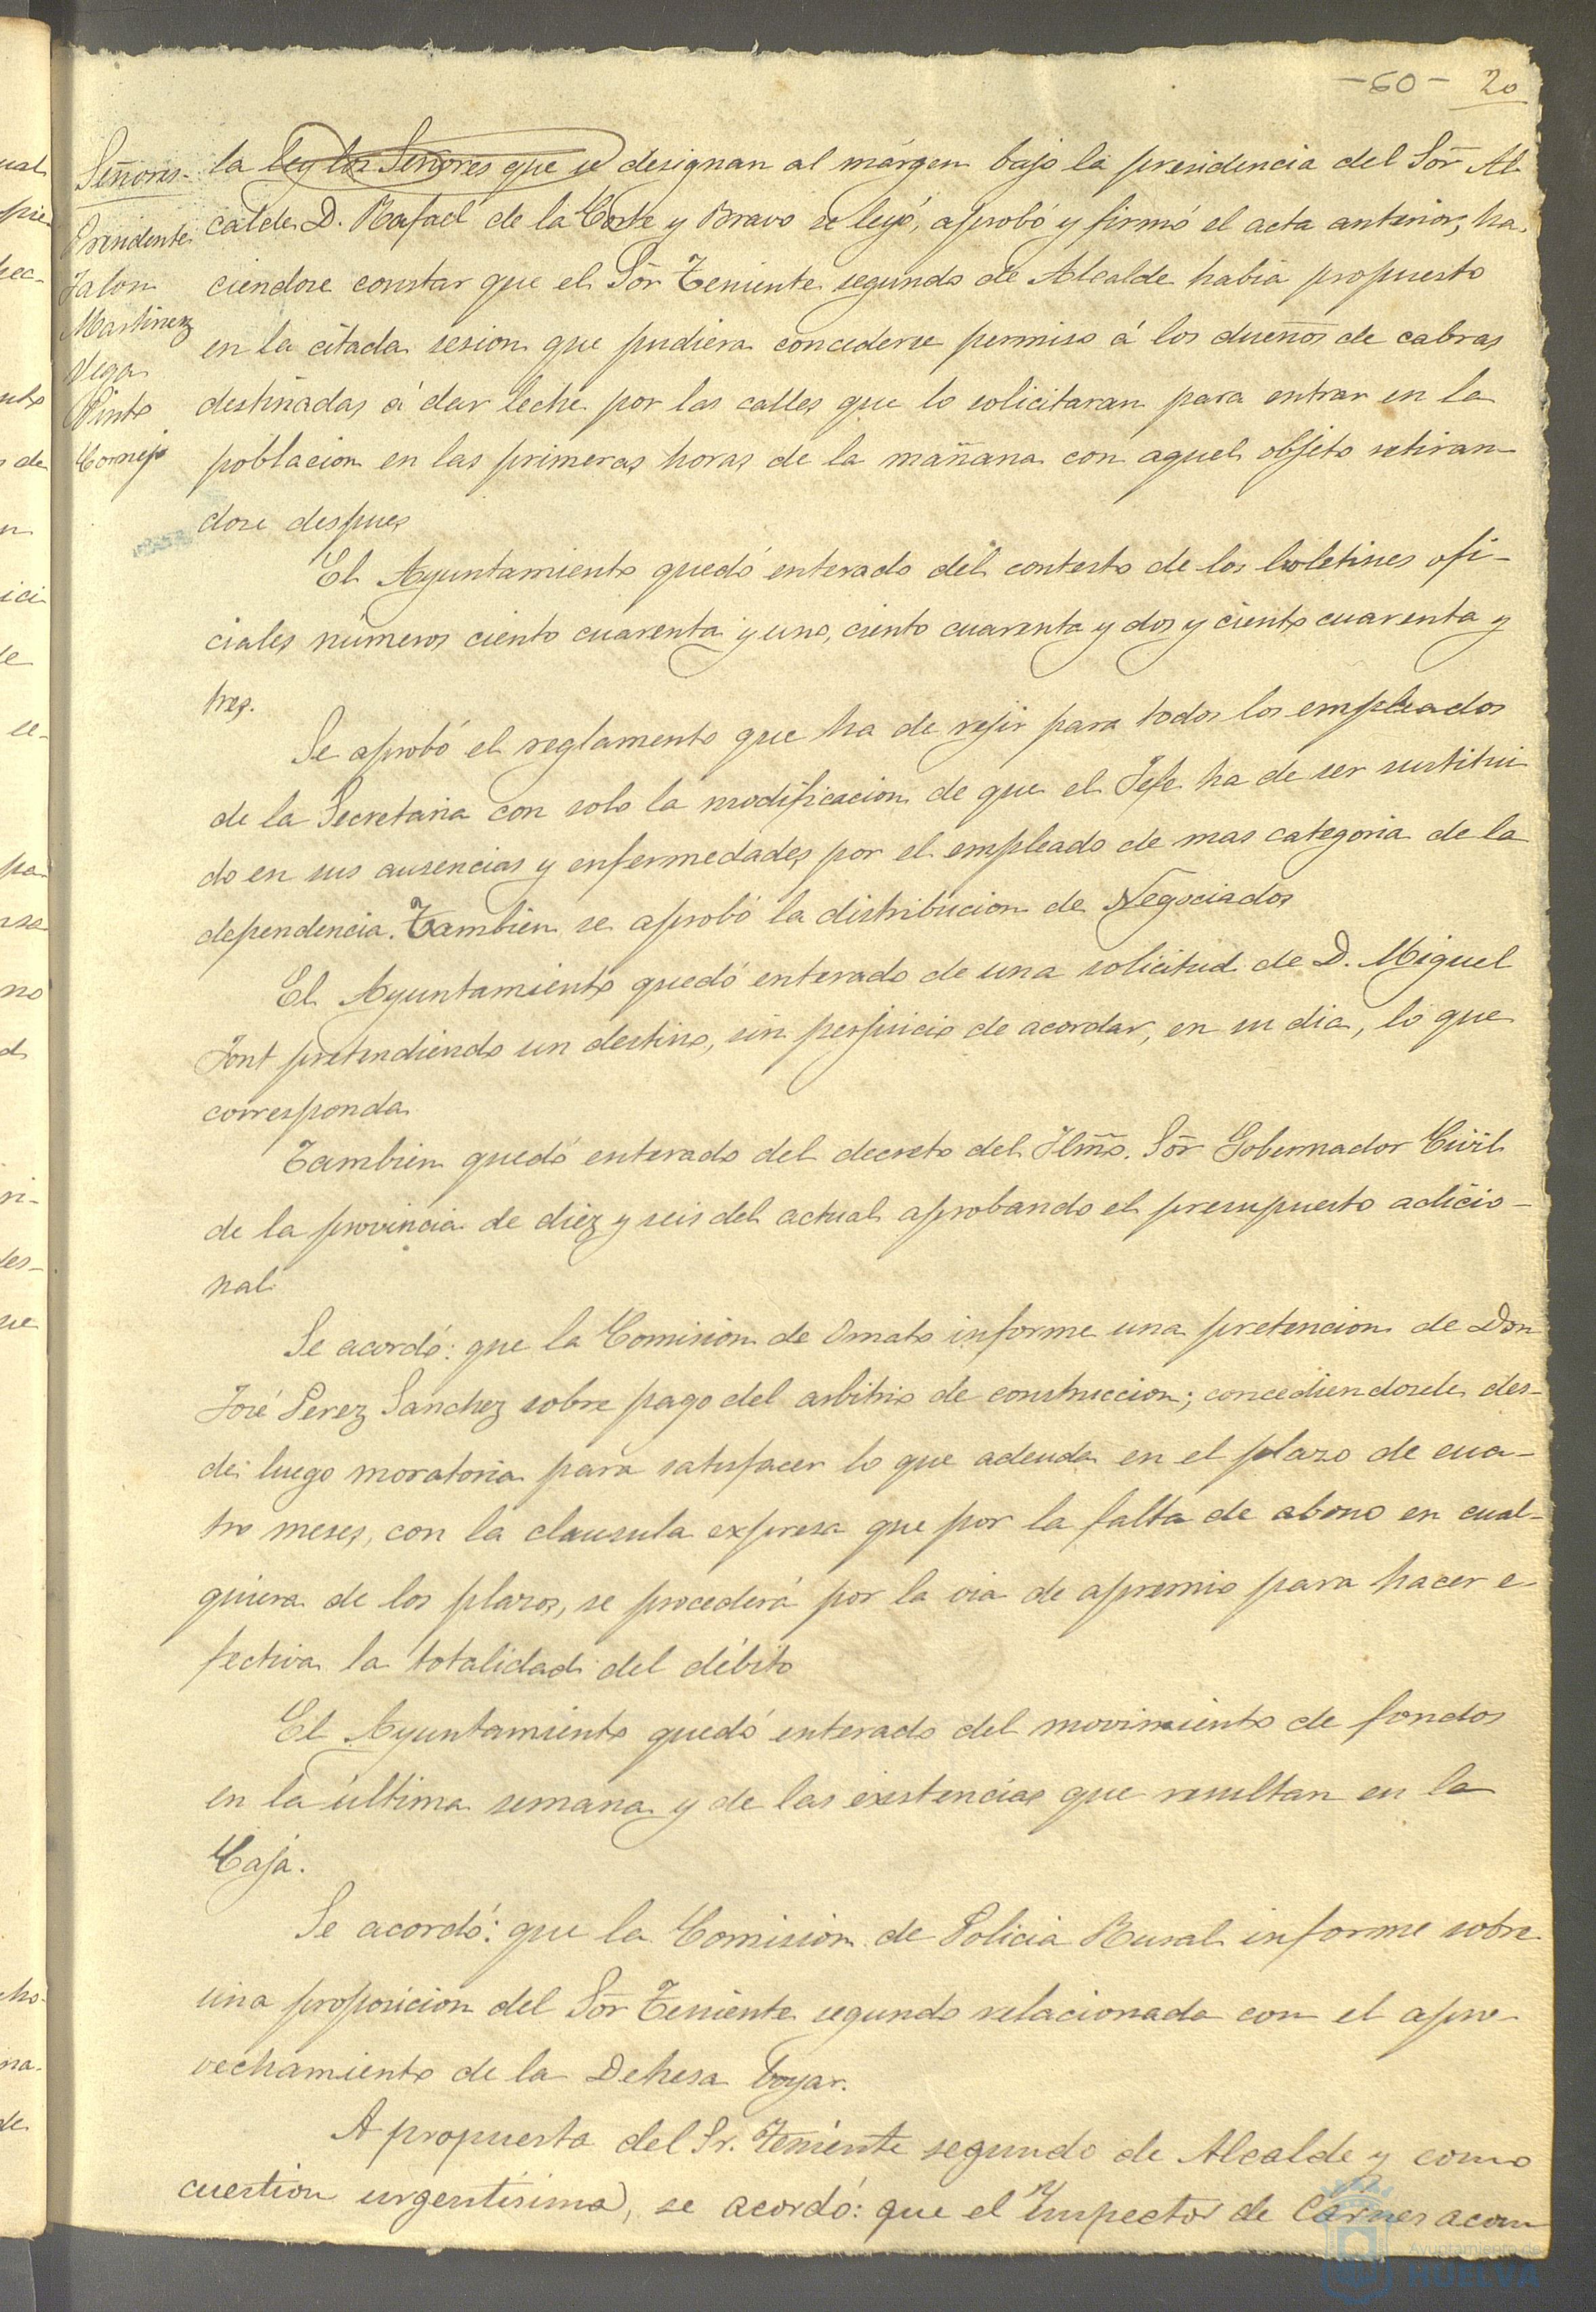 -60- 20
Señores
Presidente
Jalon
Martinez
Vega
Pinto
Cornejo
la ley los Señores que se designan al márgen bajo la presidencia del Sor Al
calde D. Rafael de la Corte y Bravo se leyó, aprobó y firmó el acta anterior, ha-
ciendose constar que el Sor Teniente segundo de Alcalde habia propuesto
en la citada sesion que pudiera concederse permiso á los dueños de cabras
destinadas á dar leche por las calles que lo solicitaran para entrar en la
poblacion en las primeras horas de la mañana con aquel objeto retiran-
dose despues
El Ayuntamiento quedó enterado del contesto de los boletines ofi-
ciales números ciento cuarenta y uno, ciento cuarenta y dos y ciento cuarenta y
tres.
Se aprobó el reglamento que ha de rejir para todos los empleados
de la Secretaria con solo la modificacion de que el Jefe ha de ser sustitui
do en sus ausencias y enfermedades por el empleado de mas categoria de la
dependencia. Tambien se aprobó la distribucion de Negociados
El Ayuntamiento quedó enterado de una solicitud de D. Miguel
Font pretendiendo un destino, sin perjuicio de acordar, en su dia, lo que
corresponda
Tambien quedó enterado del decreto del Ilmo. Sor Gobernador Civil
de la provincia de diez y seis del actual aprobando el presupuesto adicio-
nal
Se acordó: que la Comision de Ornato informe una pretencion de Don
José Perez Sanchez sobre pago del arbitrio de construccion; concediendosele des-
de luego moratoria para satisfacer lo que adeuda en el plazo de cua-
tro meses, con la clausula expresa que por la falta de abono en cual-
quiera de los plazos, se procederá por la via de apremio para hacer e-
fectiva la totalidad del débito
El Ayuntamiento quedó enterado del movimiento de fondos
en la última semana y de las existencias que resultan en la
Caja.
Se acordó: que la Comision de Policia Rural informe sobre
una proposicion del Sor Teniente segundo relacionada con el apro-
vechamiento de la Dehesa boyar.
A propuesta del Sr. Teniente segundo de Alcalde y como
cuestion urgentísima, se acordó: que el Inspector de Carnes acom
Ayuntamiento de
HUELVA